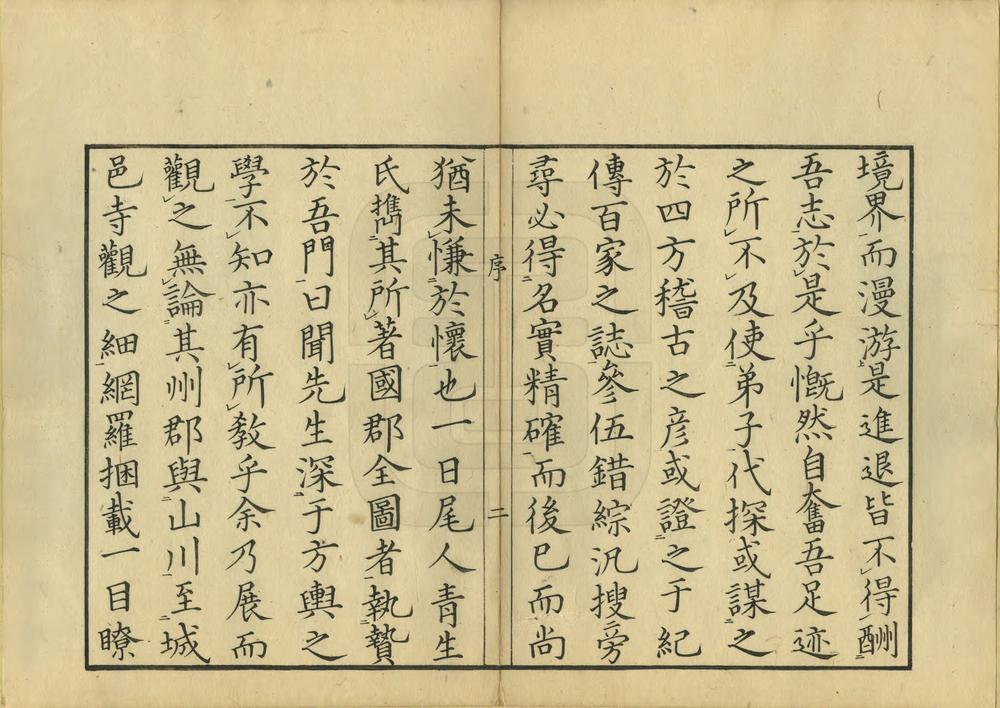 境界而漫游是進退皆不得酬
吾志於是乎慨然自奮吾足迹
之所不及使弟子代探或謀之
於四方稽古之彦或證之于紀
傳百家之誌參伍錯綜汎搜旁
尋必得名實精確而後已而尚
序
二
猶未慊於懷也一日尾人青生
氏携其所著國郡全圖者執贄
於吾門曰聞先生深于方輿之
學不知亦有所教乎余乃展而
觀之無論其州郡與山川至城
邑寺觀之細網羅捆載一目瞭